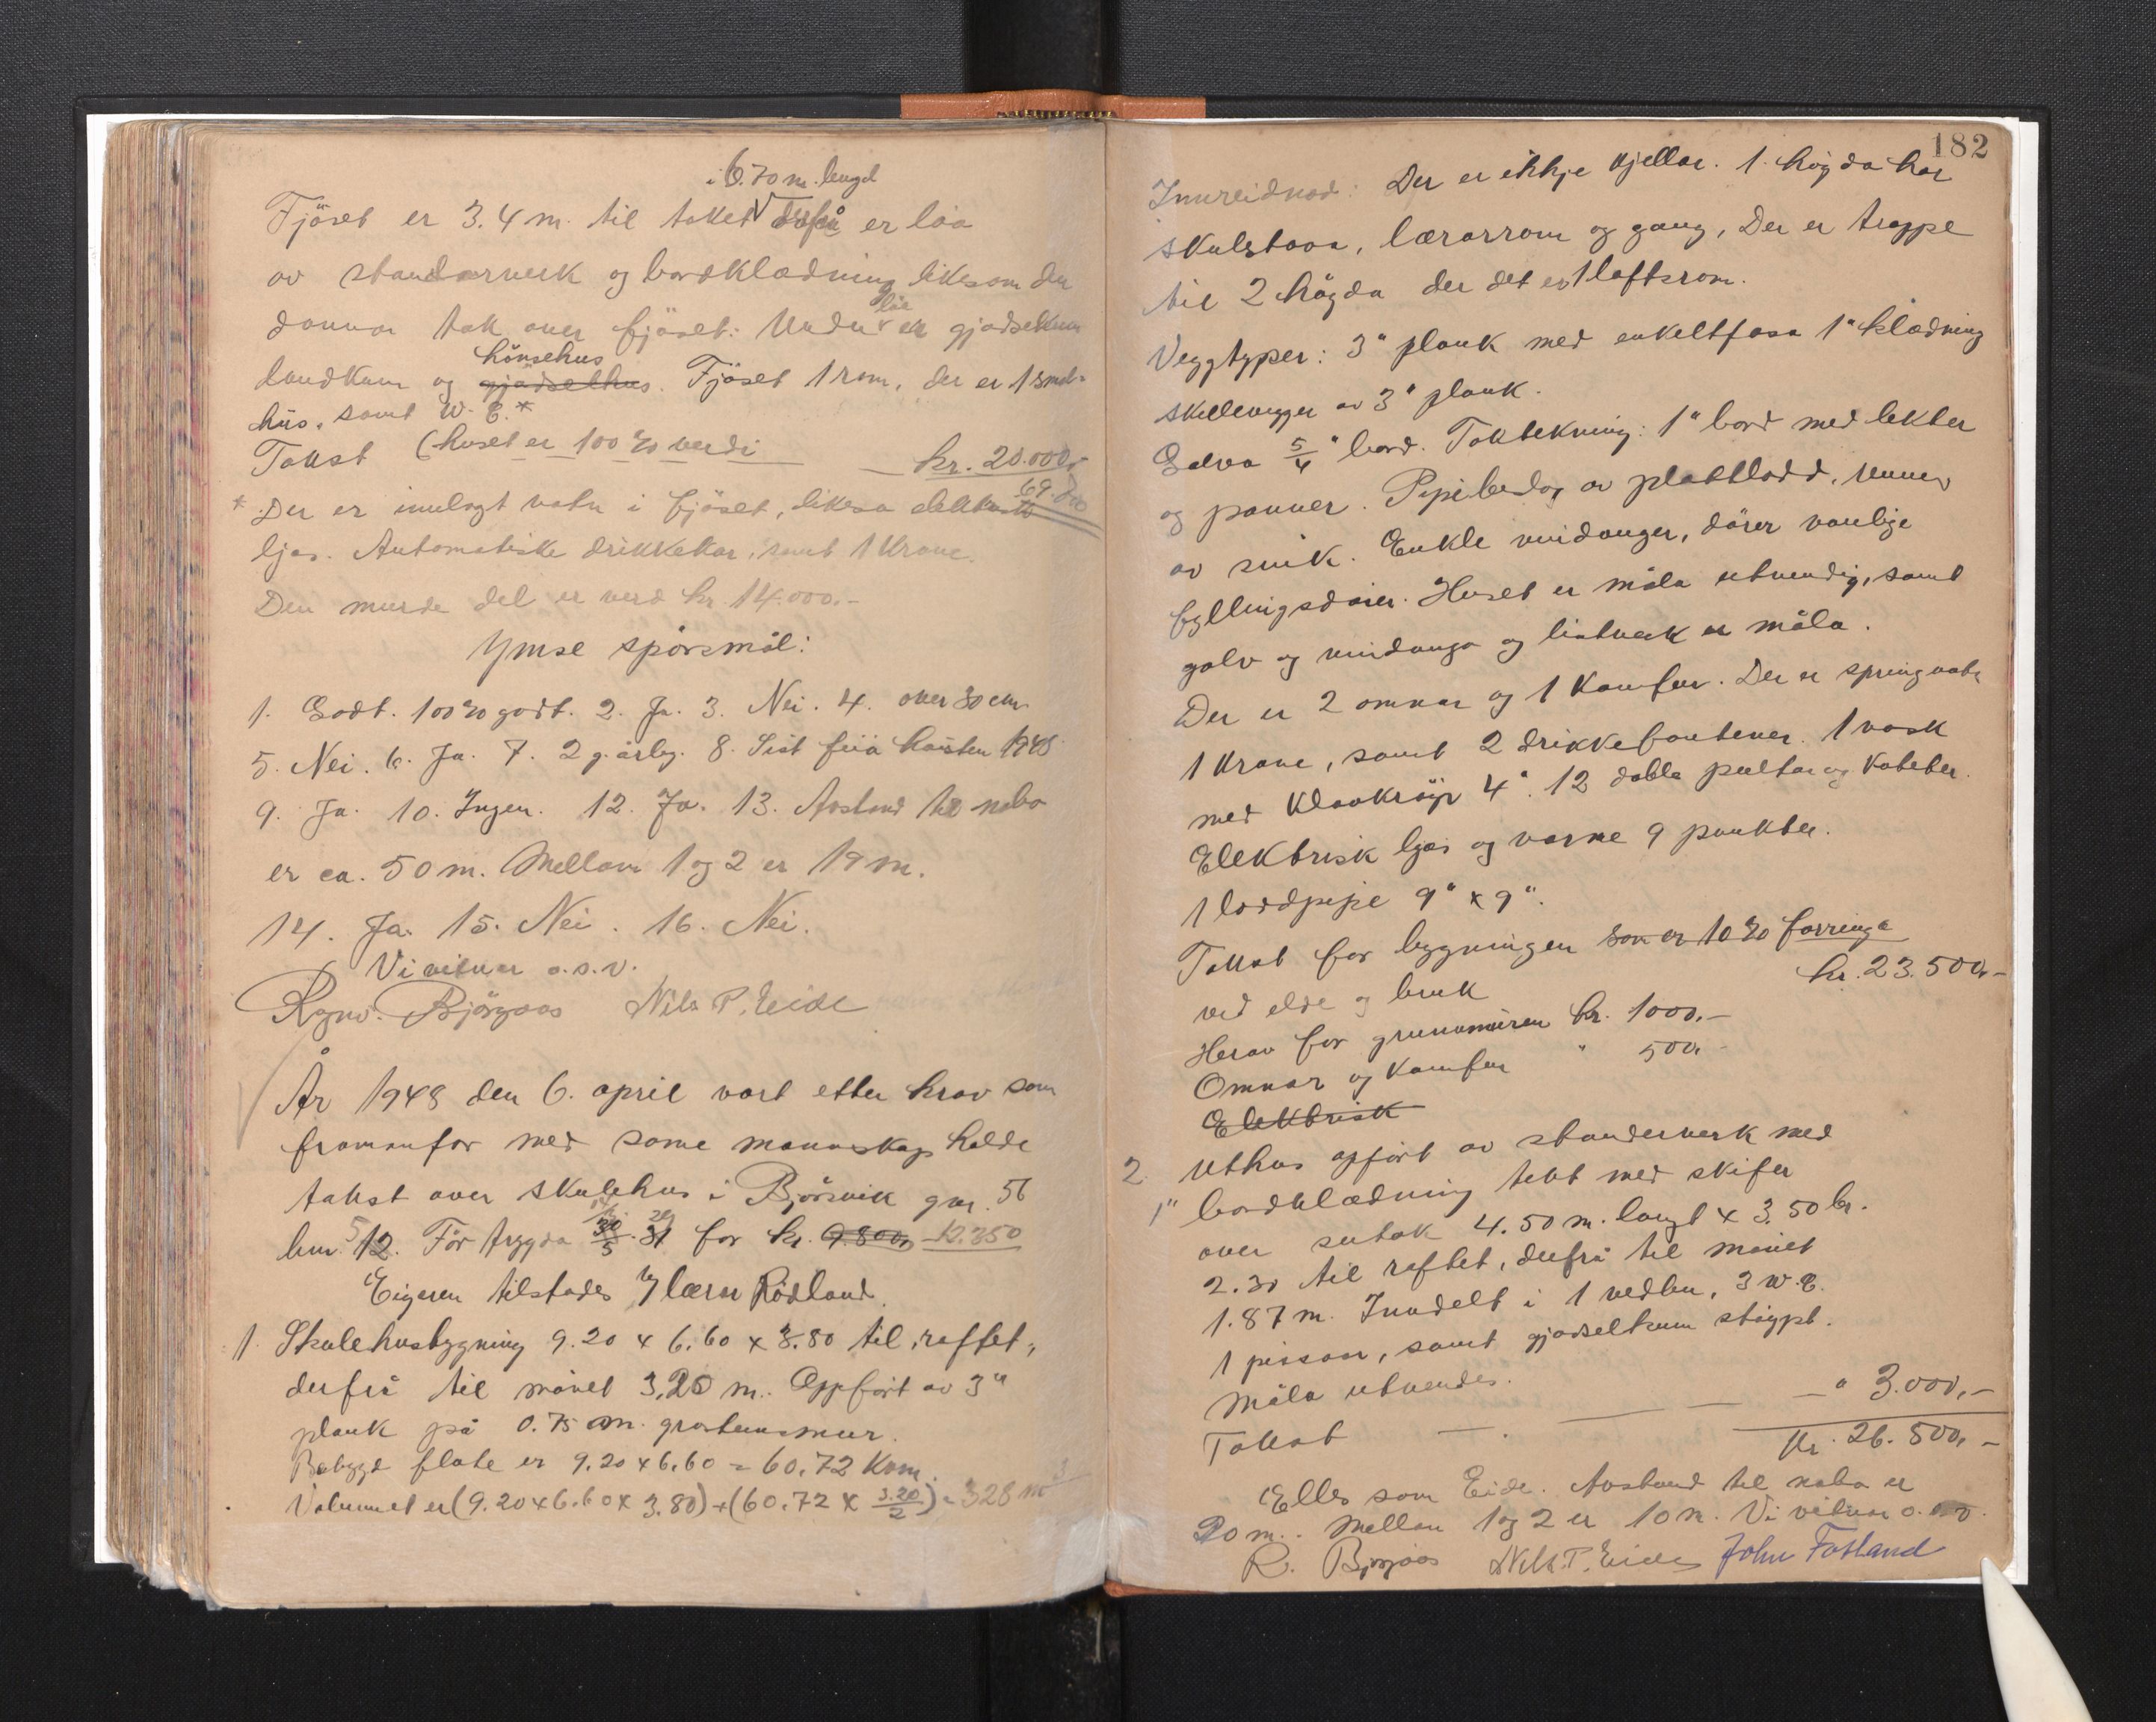 i 6.70 m. lengd
Fjöset er 3.4 m. til taket derfrå er löa
av standarverk og bordklædning likesom den
dannar tak over fjöset. Under löe er gjødselkum
landkum og hönsehus gjødselhus. Fjöset 1 rom, der er 1 smal-
hus, samt W.C.*
Takst (huset er 100 % verdi kr. 20.000,-
69.800
* Der er innlagt vatn i fjöset, likeså elektrisk
ljos. Automatiske drikkekar, samt 1 Krane.
Den murde del er verd kr. 14.000.-
Ymse spörsmål:
1. Godt. 100 % godt. 2. Ja. 3. Nei. 4. over 30 cm.
5. Nei. 6. Ja. 7. 2 g. årleg. 8. Sist feia hausten 1948
9. Ja. 10. Ingen. 12. Ja. 13. Avstand til nabo
er ca. 50 m. Mellom 1 og 2 er 19 m.
14. Ja. 15. Nei. 16. Nei.
Vi vitnar o.s.v.
Ragnv. Bjørgaas Nils P. Eide
År 1948 den 6. april vart etter krav som
framanfor med same mannskap halde
takst over skulehus i Bjørsvik gnr. 56
bnr. 12. För trygda for kr. 9.800, 12.350
Eigeren tilstades v/ lærer Rödland.
1. Skulehusbygning 9.20 x 6.60 x 3.80 til raftet,
derfrå til mönet 3,20 m. Oppfört av 3"
plank på 0.75 m. gråsteinsmur.
Bebygd flate er 9.20 x 6.60 = 60.72 Kvm.
Volumet er (9.20 x 6.60 x 3.80) + (60.72 x 3.20/2) = 328 m3
182
Innreidnad: Der er ikkje kjellar. 1. högda har
skulstova, lærarrom og gang, Der er trappe
til 2 högda der det er 1 loftsrom.
Veggtyper: 3" plank med enkeltfasa 1" klædning
skillevegger av 3" plank.
Golva 5/4" bord. Taktekning: 1" bord med lekter
og panner. Pipebeslag av plattlodd, renner
av sink. Enkle vindauger, dörer vanlige
fyllingsdörer. Huset er måla utvendig, samt
golv og vindauga og listverk er måla.
Der er 2 omnar og 1 Komfur. Der er springvatn
1 krane, samt 2 drikkefontener. 1 vask
med kloakrøyr 4". 12 doble pultar og Kateter.
Elektrisk ljos og varme 9 punkter.
1 loddpipe 9" x 9".
Takst for bygningen som er 10 % forringa
ved elde og bruk kr. 23.500,-
Herav for grunnmuren kr. 1000.-
Omnar og Komfur " 500.-
Elektrisk
2. Uthus oppfört av standerverk med
1" bordklædning tekt med skifer
over sutak 4.50 m. langt x 3.50 br.
2.30 til raftet, derfrå til mönet
1.87 m. Inndelt i 1 vedbu, 3 W.C.
1 pissoar, samt gjødselkum stöypt.
Måla utvendes.
Takst " 3.000,-
Kr. 26.500,-
Elles som Eide. Avstand til nabo er
20 m. Mellom 1 og 2 er 10 m. Vi vitnar o.s.v.
R. Bjørgaas Nils P. Eide John Fosland